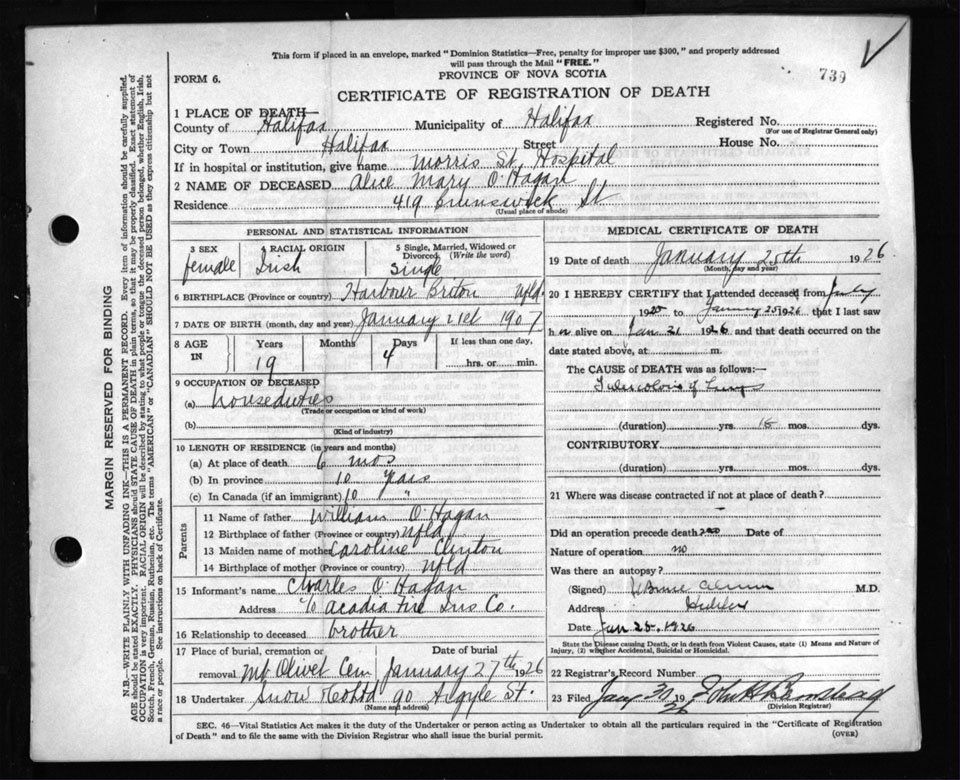 This form if placed in an envelope, marked "Dominion Statistics—Free, penalty for improper use $300," and properly addressed
will pass through the Mail "FREE."
739
FORM 6.
PROVINCE OF NOVA SCOTIA
CERTIFICATE OF REGISTRATION OF DEATH
1 PLACE OF DEATH—
County of Halifax Municipality of Halifax Registered No.
(For use of Registrar General only)
City or Town Halifax Street House No.
If in hospital or institution, give name Morris St. Hospital
2 NAME OF DECEASED Alice Mary O'Hagan
Residence 419 Brunswick St
(Usual place of abode)
PERSONAL AND STATISTICAL INFORMATION
3 SEX female
4 RACIAL ORIGIN Irish
5 Single, Married, Widowed or Divorced (Write the word) Single
6 BIRTHPLACE (Province or country) Harbour Briton Nfld.
7 DATE OF BIRTH (month, day and year) January 21st 1907
8 AGE IN Years 19 Months Days 4 If less than one day, hrs. or min.
9 OCCUPATION OF DECEASED
(a) houseduties
(Trade or occupation or kind of work)
(b)
(Kind of industry)
10 LENGTH OF RESIDENCE (in years and months)
(a) At place of death 6 mos
(b) In province 10 years
(c) In Canada (if an immigrant) 10 "
Parents
11 Name of father William O'Hagan
12 Birthplace of father (Province or country) Nfld
13 Maiden name of mother Caroline Clinton
14 Birthplace of mother (Province or country) Nfld
15 Informant's name Charles O'Hagan
Address c/o Acadia Fire Ins Co.
16 Relationship to deceased brother
17 Place of burial, cremation or removal Mt Olivet Cem Date of burial January 27th 1926
18 Undertaker Snow & Co Ltd 90 Argyle St.
(Name and address)
MEDICAL CERTIFICATE OF DEATH
19 Date of death January 25th 1926
(Month, day and year)
20 I HEREBY CERTIFY that I attended deceased from July
1925 to January 25 1926 that I last saw
h er alive on Jan 21 1926 and that death occurred on the
date stated above, at m.
The CAUSE of DEATH was as follows:—
Tuberculosis of Lungs
(duration) yrs. mos. dys.
CONTRIBUTORY.
(duration) yrs. mos. dys.
21 Where was disease contracted if not at place of death?
Did an operation precede death? no Date of
Nature of operation no
Was there an autopsy?
(Signed) M.D.
Address Halifax
Date Jan 25, 1926
State the Disease causing Death, or in death from Violent Causes, state (1) Means and Nature of
Injury, (2) whether Accidental, Suicidal or Homicidal.
22 Registrar's Record Number
23 Filed Jany 30 1926
(Division Registrar)
SEC. 46—Vital Statistics Act makes it the duty of the Undertaker or person acting as Undertaker to obtain all the particulars required in the "Certificate of Registration
of Death" and to file the same with the Division Registrar who shall issue the burial permit.
(OVER)
MARGIN RESERVED FOR BINDING
N.B.—WRITE PLAINLY WITH UNFADING INK—THIS IS A PERMANENT RECORD. Every item of information should be carefully supplied.
AGE should be stated EXACTLY. PHYSICIANS should STATE CAUSE OF DEATH in plain terms, so that it may be properly classified. Exact statement of
OCCUPATION is very important. RACIAL ORIGIN will be described by stating to what people or tongue the deceased person belonged, whether English, Irish,
Scotch, French, German, Russian, Ruthenian, etc. The terms "AMERICAN" or "CANADIAN" SHOULD NOT BE USED as they express citizenship but not
a race or people. See instructions on back of Certificate.